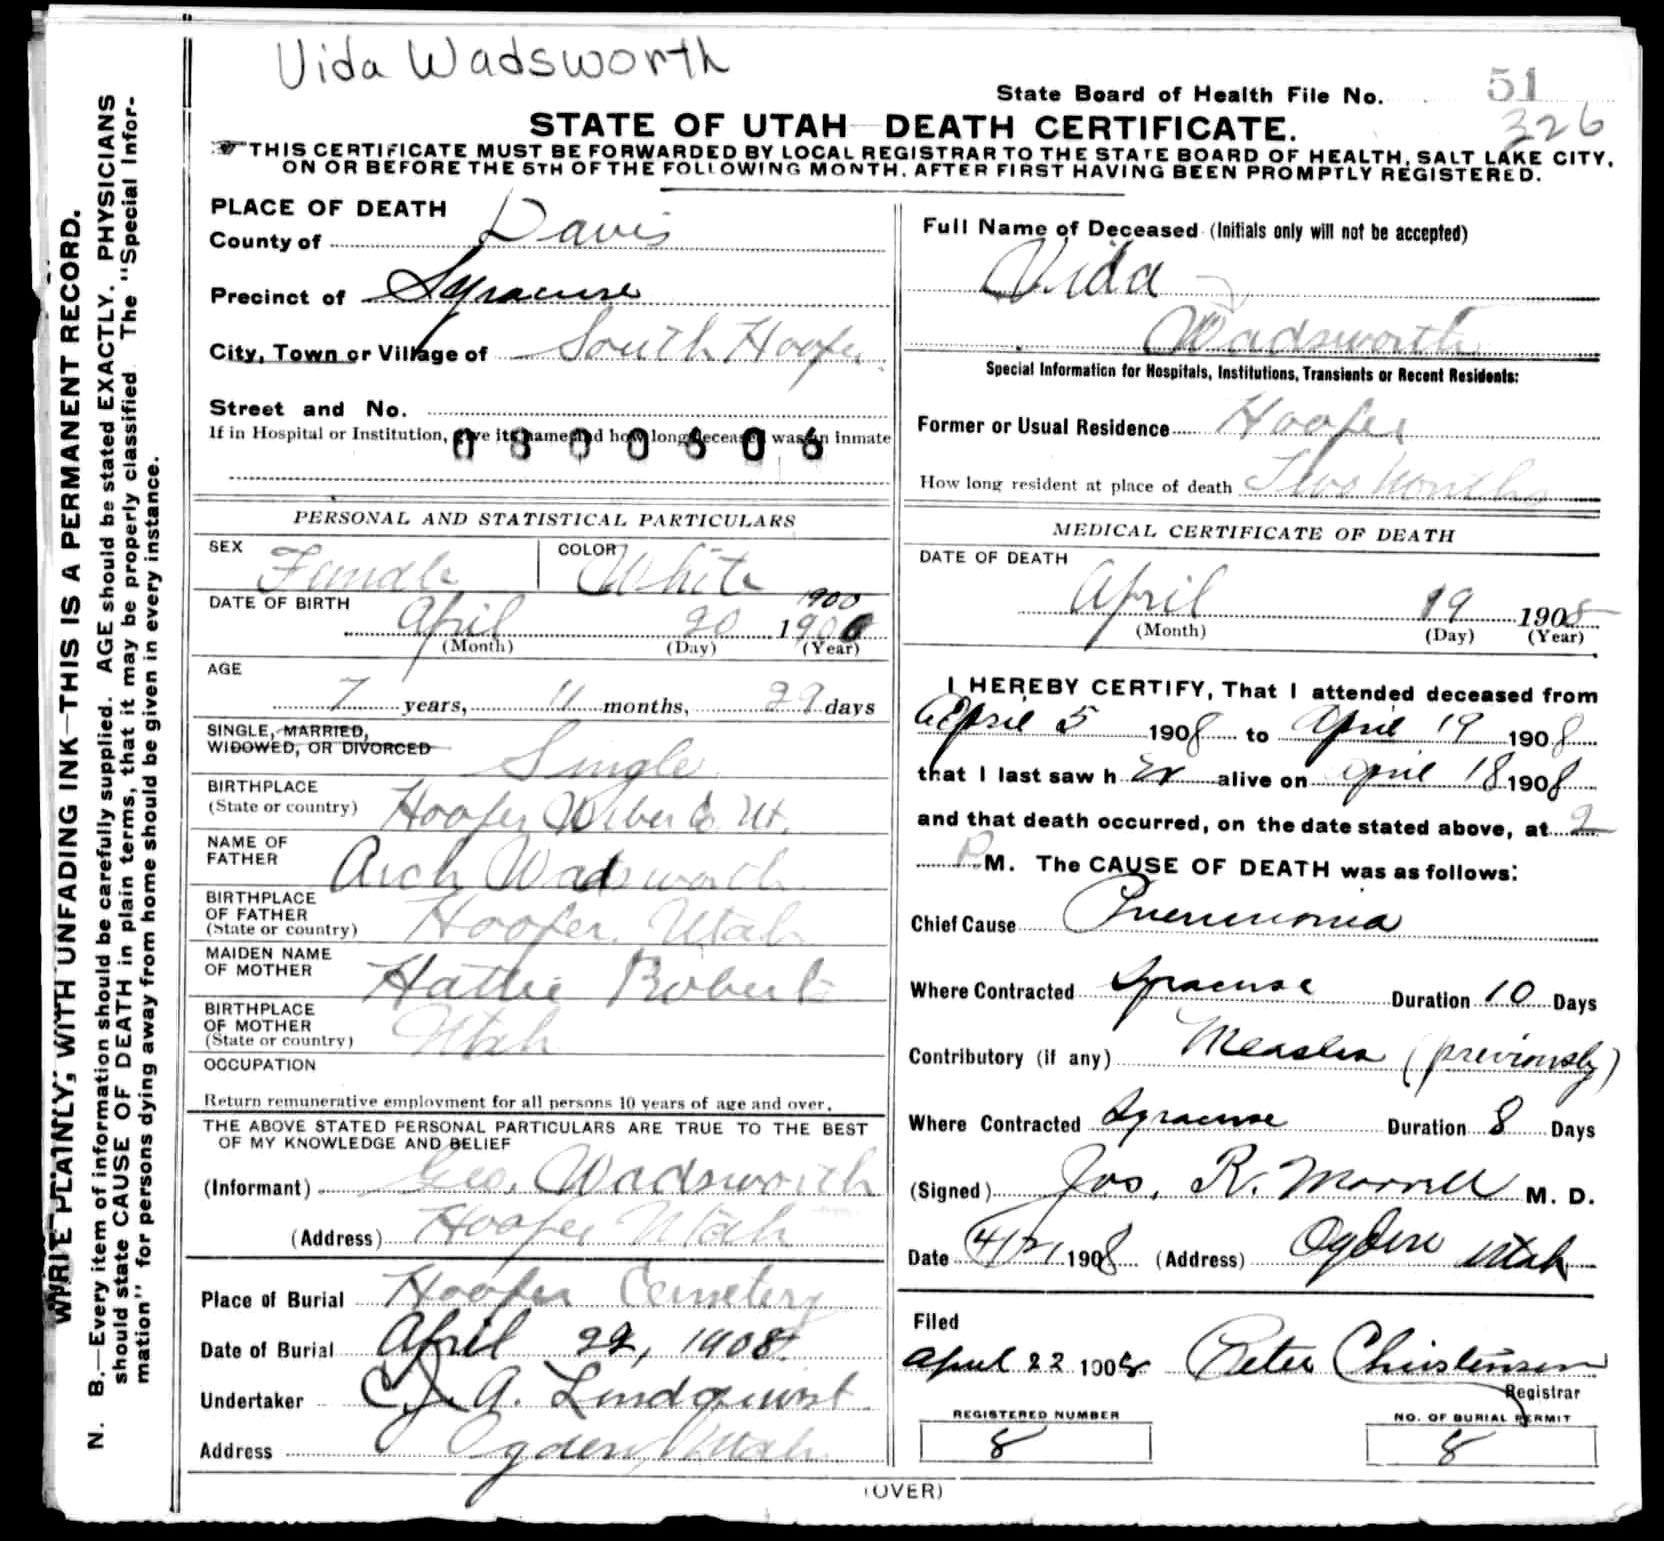 Vida Wadsworth
State Board of Health File No. 51
326
STATE OF UTAH—DEATH CERTIFICATE.
THIS CERTIFICATE MUST BE FORWARDED BY LOCAL REGISTRAR TO THE STATE BOARD OF HEALTH, SALT LAKE CITY,
ON OR BEFORE THE 5TH OF THE FOLLOWING MONTH, AFTER FIRST HAVING BEEN PROMPTLY REGISTERED.
WRITE PLAINLY, WITH UNFADING INK—THIS IS A PERMANENT RECORD.
N. B.—Every item of information should be carefully supplied. AGE should be stated EXACTLY. PHYSICIANS
should state CAUSE OF DEATH in plain terms, that it may be properly classified. The "Special Infor-
mation" for persons dying away from home should be given in every instance.
PLACE OF DEATH
County of Davis
Precinct of Syracuse
City, Town or Village of South Hooper
Street and No.
If in Hospital or Institution, give its name and how long deceased was an inmate
0800606
PERSONAL AND STATISTICAL PARTICULARS
SEX Female COLOR White
DATE OF BIRTH 1900
April 20 1900
(Month) (Day) (Year)
AGE
7 years, 11 months, 29 days
SINGLE, MARRIED,
WIDOWED, OR DIVORCED Single
BIRTHPLACE
(State or country) Hooper Weber Co Ut.
NAME OF
FATHER Arch Wadsworth
BIRTHPLACE
OF FATHER
(State or country) Hooper, Utah
MAIDEN NAME
OF MOTHER Hattie Robert
BIRTHPLACE
OF MOTHER
(State or country) Utah
OCCUPATION
Return remunerative employment for all persons 10 years of age and over.
THE ABOVE STATED PERSONAL PARTICULARS ARE TRUE TO THE BEST
OF MY KNOWLEDGE AND BELIEF
(Informant) Geo. Wadsworth
(Address) Hooper Utah
Place of Burial Hooper Cemetery
Date of Burial April 22, 1908.
Undertaker A. Lindquist
Address Ogden, Utah
Full Name of Deceased (Initials only will not be accepted)
Vida
Wadsworth
Special Information for Hospitals, Institutions, Transients or Recent Residents:
Former or Usual Residence Hooper
How long resident at place of death Two Months
MEDICAL CERTIFICATE OF DEATH
DATE OF DEATH
April 19 1908
(Month) (Day) (Year)
I HEREBY CERTIFY, That I attended deceased from
April 5 1908 to April 19 1908
that I last saw h er alive on April 18 1908
and that death occurred, on the date stated above, at 2
P M. The CAUSE OF DEATH was as follows:
Chief Cause Pneumonia
Where Contracted Syracuse Duration 10 Days
Contributory (if any) Measles (previously)
Where Contracted Syracuse Duration 8 Days
(Signed) Jos. R. Morrell M. D.
Date 4/21 1908 (Address) Ogden Utah
Filed
April 22 1908 Peter Christensen
Registrar
REGISTERED NUMBER
8
NO. OF BURIAL PERMIT
8
(OVER)